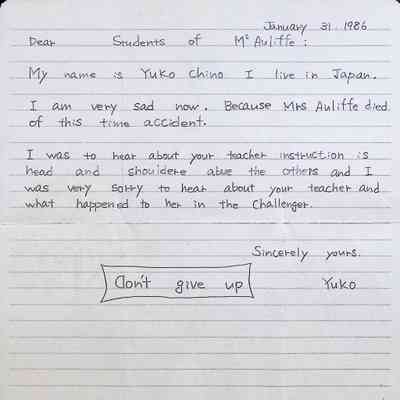 January 31. 1986
Dear Students of Mc Auliffe :
My name is Yuko Chino I live in Japan.
I am very sad now. Because Mrs Auliffe died
of this time accident.
I was to hear about your teacher instruction is
head and shouidere abue the others and I
was very sorry to hear about your teacher and
what happened to her in the Challenger.
Sincerely yours.
Don't give up Yuko